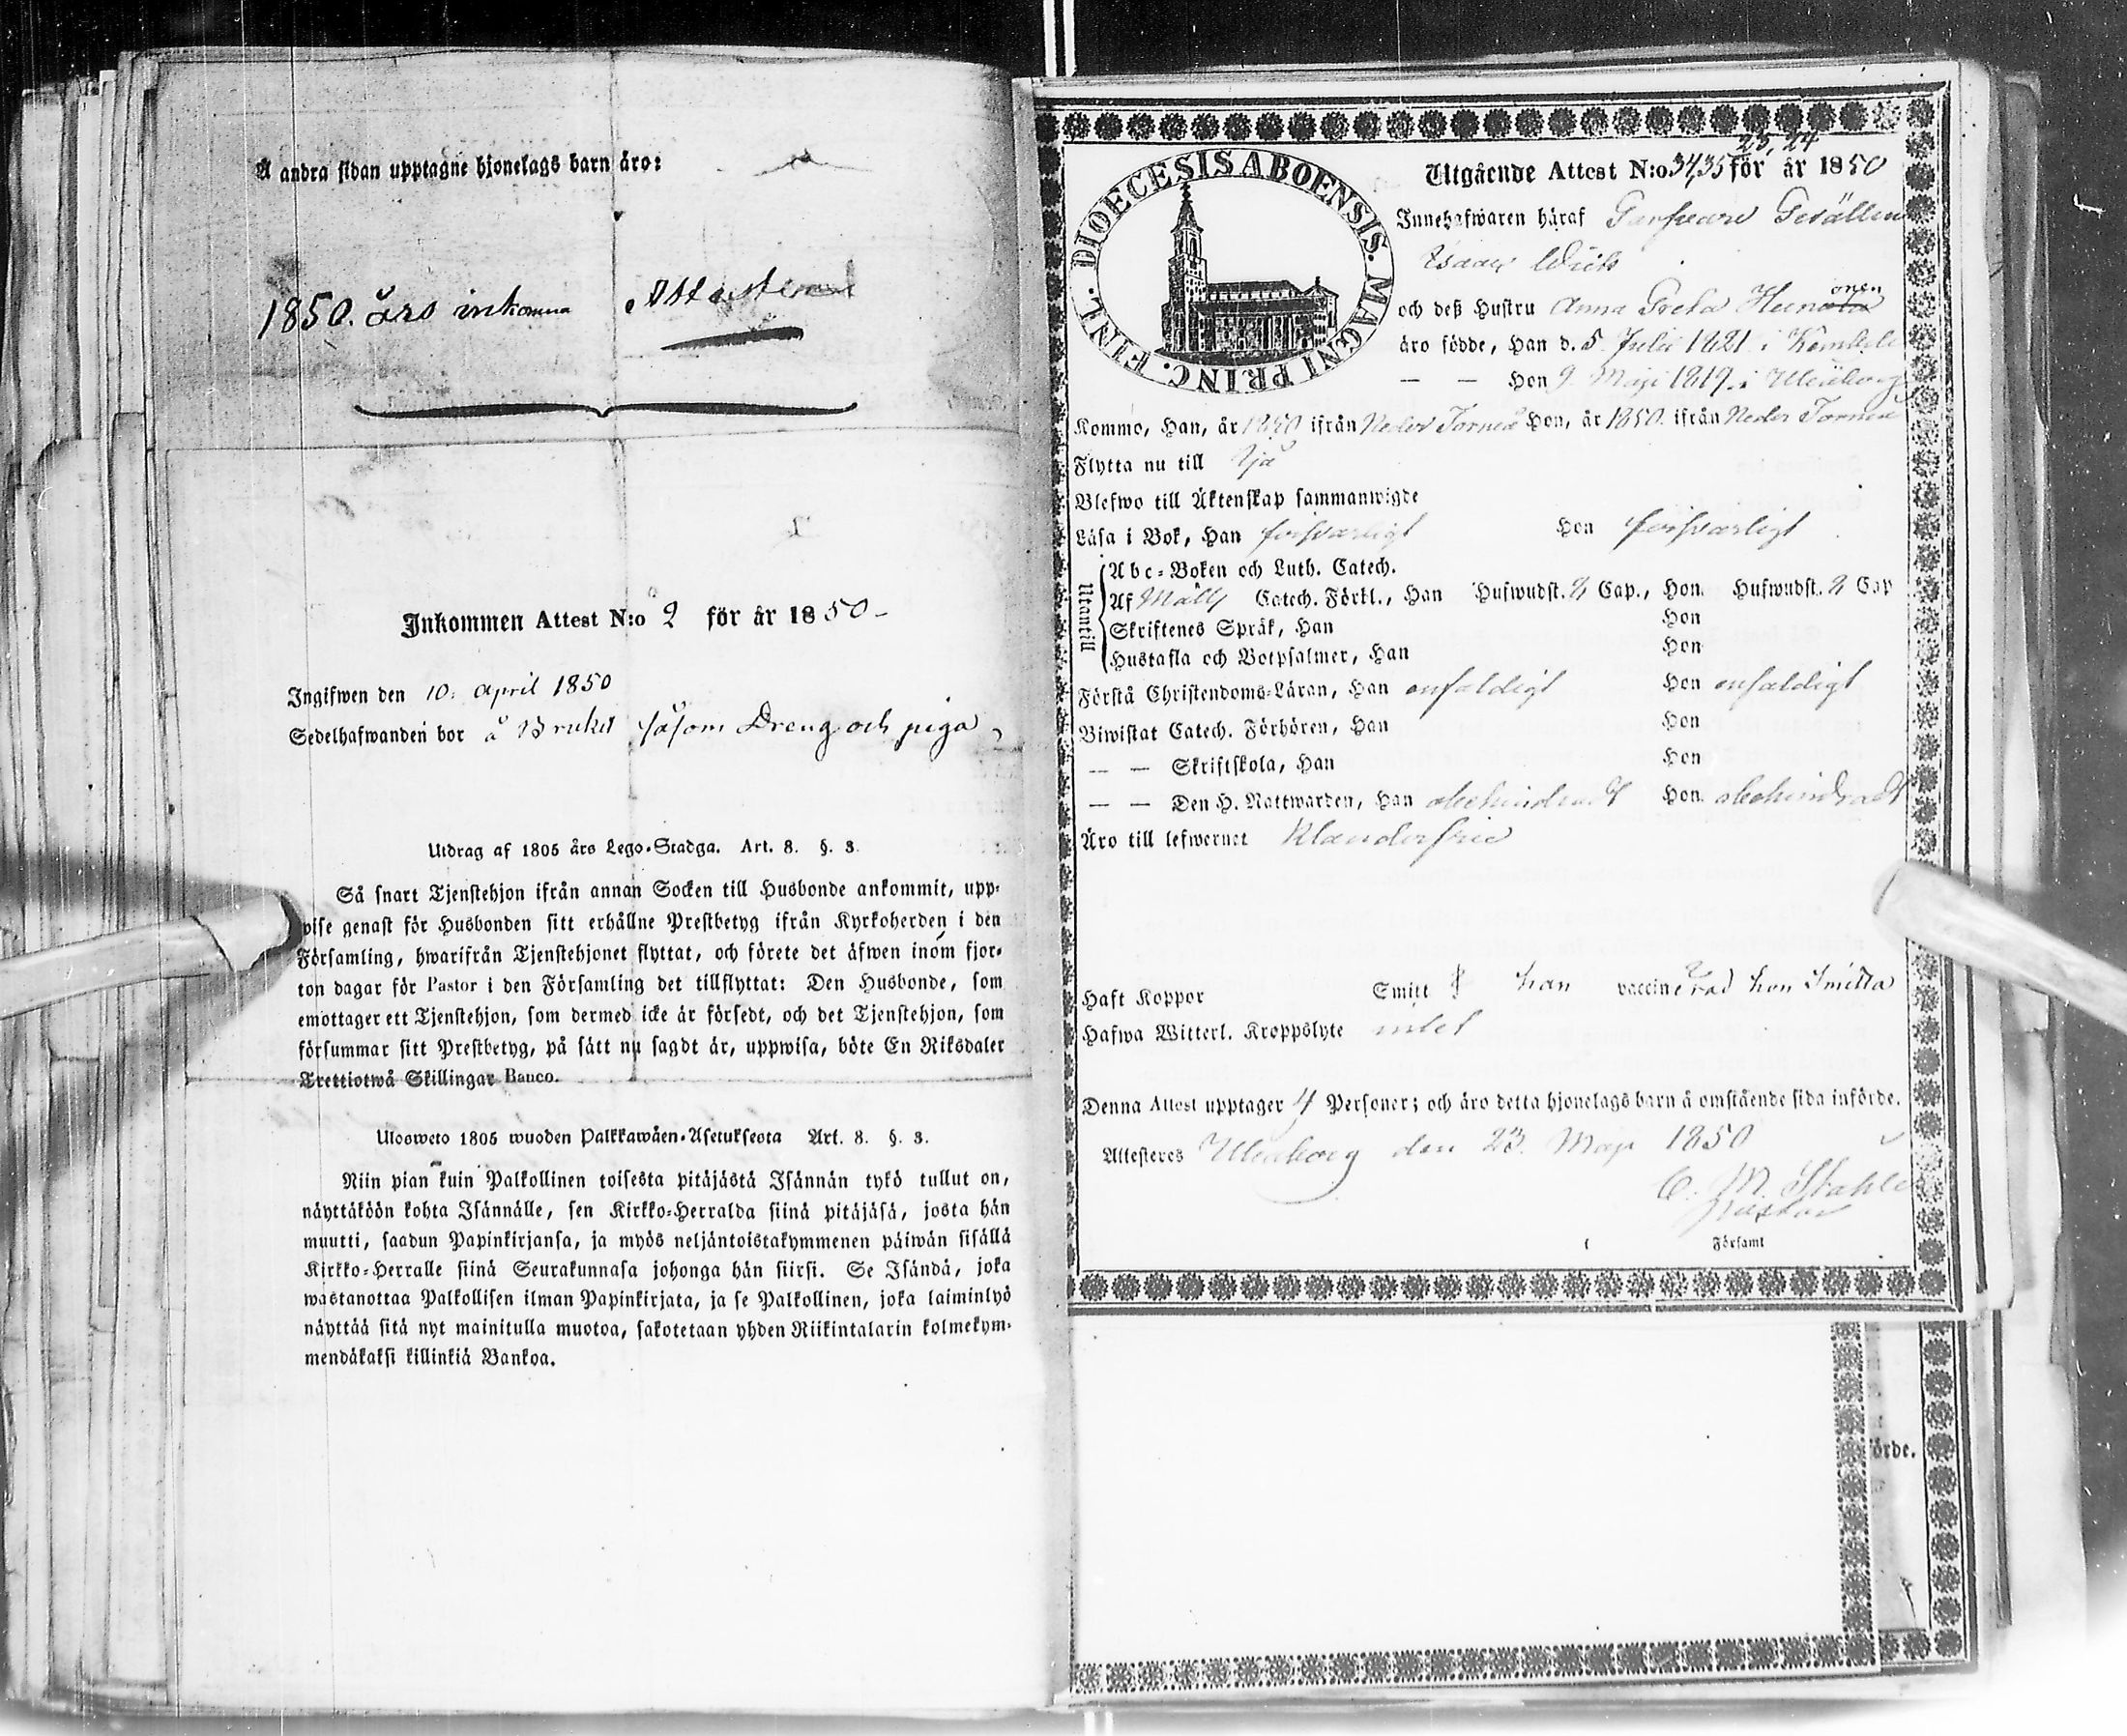 Å andra sidan upptagne hjonelags barn äro:
1850. års inkomna Attester
Inkommen Attest N:o 2 för år 1850
Ingifwen den 10. april 1850
Sedelhafwanden bor å Bruket såsom Dreng och piga
Utdrag af 1805 års Lego-Stadga. Art. 8. §. 3.
Så snart Tjenstehjon ifrån annan Socken till Husbonde ankommit, upp-
wise genast för Husbonden sitt erhållne Prestbetyg ifrån Kyrkoherden i den
Församling, hwarifrån Tjenstehjonet flyttat, och förete det äfwen inom fjor-
ton dagar för Pastor i den Församling det tillflyttat: Den Husbonde, som
emottager ett Tjenstehjon, som dermed icke är försedt, och det Tjenstehjon, som
försummar sitt Prestbetyg, på sätt nu sagdt är, uppwisa, böte En Riksdaler
Trettiotwå Skillingar Banco.
Ulosweto 1805 wuoden Palkkawäen-Asetuksesta Art. 8. §. 3.
Niin pian kuin Palkollinen toisesta pitäjästä Isännän tykö tullut on,
näyttäköön kohta Isännälle, sen Kirkko-Herralda siinä pitäjäsä, josta hän
muutti, saadun Papinkirjansa, ja myös neljäntoistakymmenen päiwän sisällä
Kirkko-Herralle siinä Seurakunnasa johonga hän siirsi. Se Isändä, joka
wastanottaa Palkollisen ilman Papinkirjata, ja se Palkollinen, joka laiminlyö
näyttää sitä nyt mainitulla muotoa, sakotetaan yhden Riikintalarin kolmekym-
mendäkaksi killinkiä Bankoa.
DIOECESIS ABOENSIS. MAGNI PRINC. FINL.
23, 24
Utgående Attest N:o 34,35 för år 1850
Innehafwaren häraf Garfvare Gesällen
Isaac
och deß Hustru Anna Greta
äro födde, Han d. 5 Julii 1821 i
— — Hon 9 Maji 1819 i Uleåborg
Kommo, Han, år 1850 ifrån Neder Torneå Hon, år 1850 ifrån Neder Torneå
Flytta nu till Ijo
Blefwo till Äktenskap sammanwigde
Läsa i Bok, Han försvarligt Hon försvarligt
Utantill
Abc-Boken och Luth. Catech.
Af Catech. Förkl., Han Hufwudst. 2 Cap., Hon Hufwudst. 2 Cap
Skriftenes Språk, Han Hon
Hustafla och Botpsalmer, Han Hon
Förstå Christendoms-Läran, Han enfaldigt Hon enfaldigt
Biwistat Catech. Förhören, Han Hon
— — Skriftskola, Han Hon
— — Den H. Nattwarden, Han obehindradt Hon obehindradt
Äro till lefwernet Klanderfrie
Haft Koppor Smitt han vaccinerad hon Smitta
Hafwa Witterl. Kroppslyte intet
Denna Attest upptager 4 Personer; och äro detta hjonelags barn å omstående sida införde.
Attesteres Uleåborg den 23. Maji 1850
C. M. Stahle
Pastor
Församl
förde.